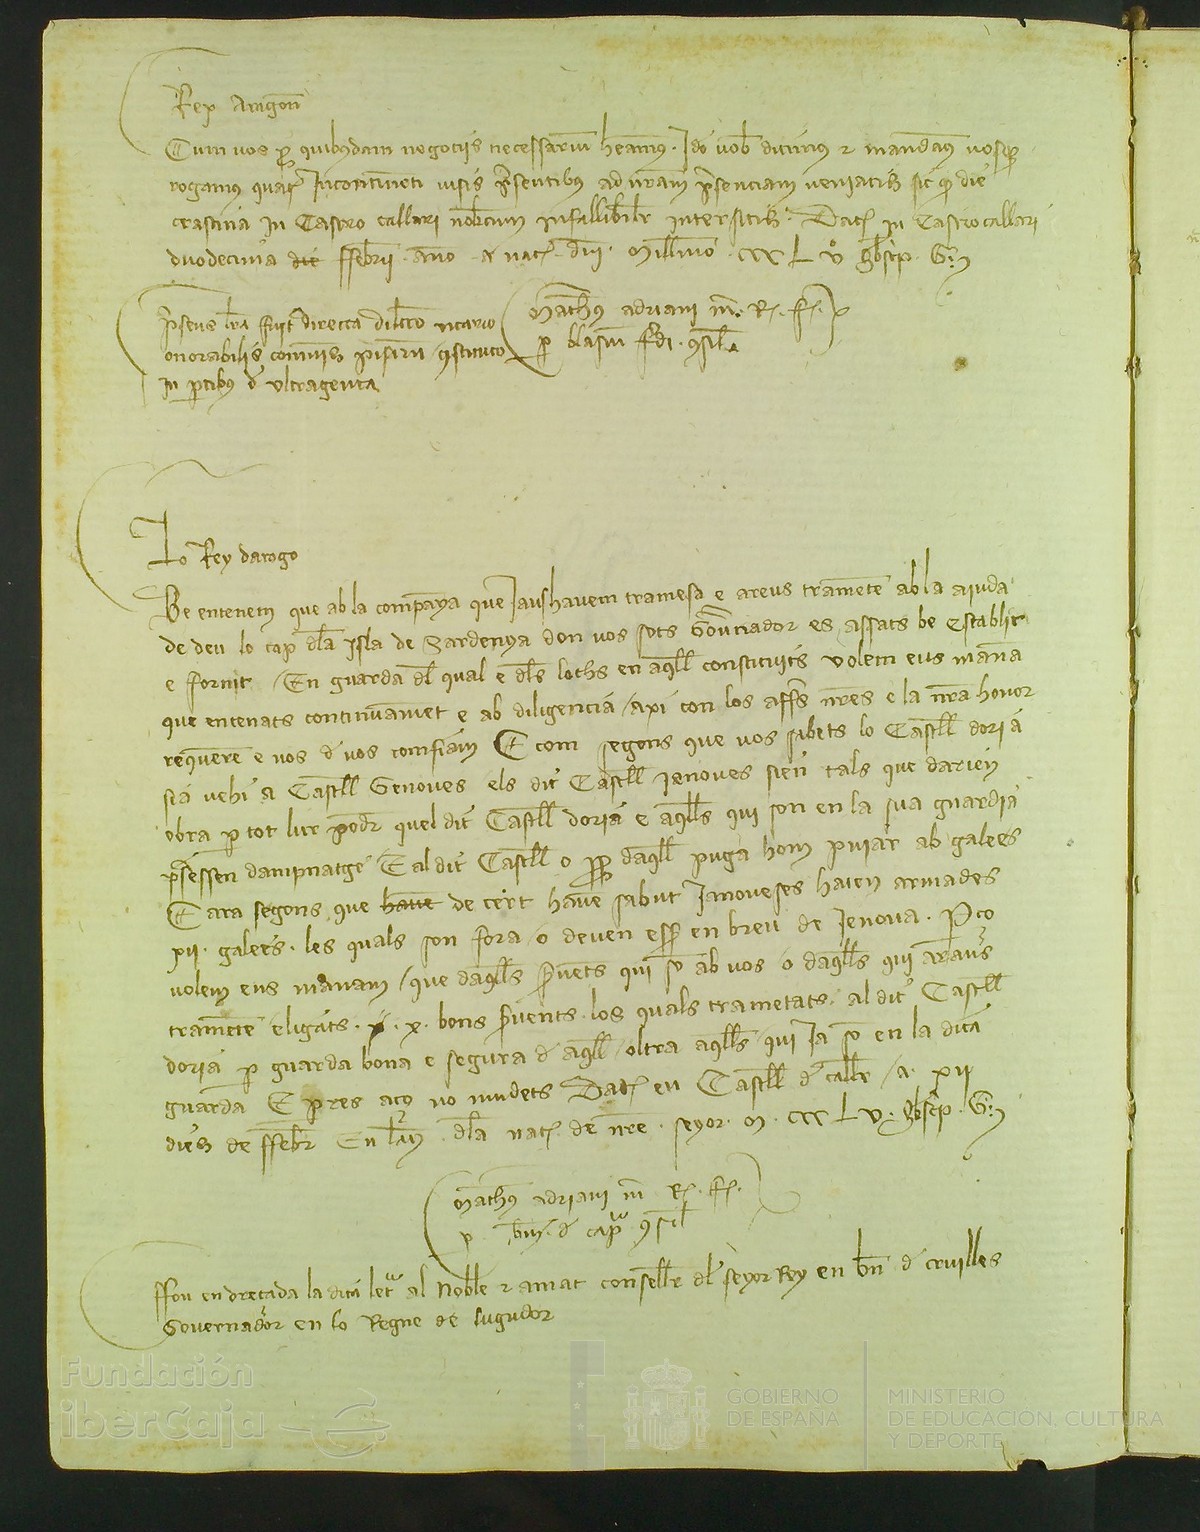 Rex Aragon
Cum vos per quibusdam negociis necessarium heamus. Ido vob dicimus et mandamus vosque
rogamus quatenus Incontinenti visis presentibus ad nram presenciam veniatis sic quod die
crastina in Castro callari nobcum infallibilr intersitis. Dat in Castro callari
duodecima die ffebrii. anno a nat dni. Millimo. CCC L vo. Gm
Presens lra fuit directa dilecto vicario
onorabilis comunis pisarum constituto
in partibus de Ultragenta
Matheus adriani m. R. ff.
per blasium frdi. consil
Lo Rey darago
Be entenem que ab la companya que Jaus havem tramesa e areus trametem ab la aiuda
de deu lo cap dla isla de Sardenya don vos sots Governador es assats be establit
e fornit. En guarda del qual e dls lochs en aqll constituits volem eus manam
que entenats continuament e ab diligencia axi con los affers nres e la nra honor
requeren e nos de vos confiam E com segons que vos sabets lo Castell doria
sia vehi a Castell Genoves els dit Castell Jenoves sien tals que darien
obra per tot lur poder quel dit Castell doria e aqlls qui son en la sua guardia
presessen dampnatge E al dit Castell o prop daqll puga hom puiar ab galees
E ara segons que havem de cert havem sabut Janoveses haien armades
xii. galees. les quals son fora o deven esser en breu de Jenova. Perço
volem eus manam que daqlls servents qui so ab vos o daqlls qui araus
trametem eligats. x. x. bons servents. los quals trametats al dit Castell
doria per guarda bona e segura de aqll oltra aqlls qui Ja so en la dita
guarda E per res aço no mudets Dat en Castell de callr a xii
dies de ffebr En lany. dla nat de nre. seyor. M. CCC L v. Gm
Matheus adriani m R. ff.
p. bn. de cap consil
ffou endreçada la dita letra al Noble et amat conseller dl seyor Rey en bn de cruilles
Governador en lo Regne de lugudor
Fundación
iberCaja
GOBIERNO
DE ESPAÑA
MINISTERIO
DE EDUCACIÓN, CULTURA
Y DEPORTE